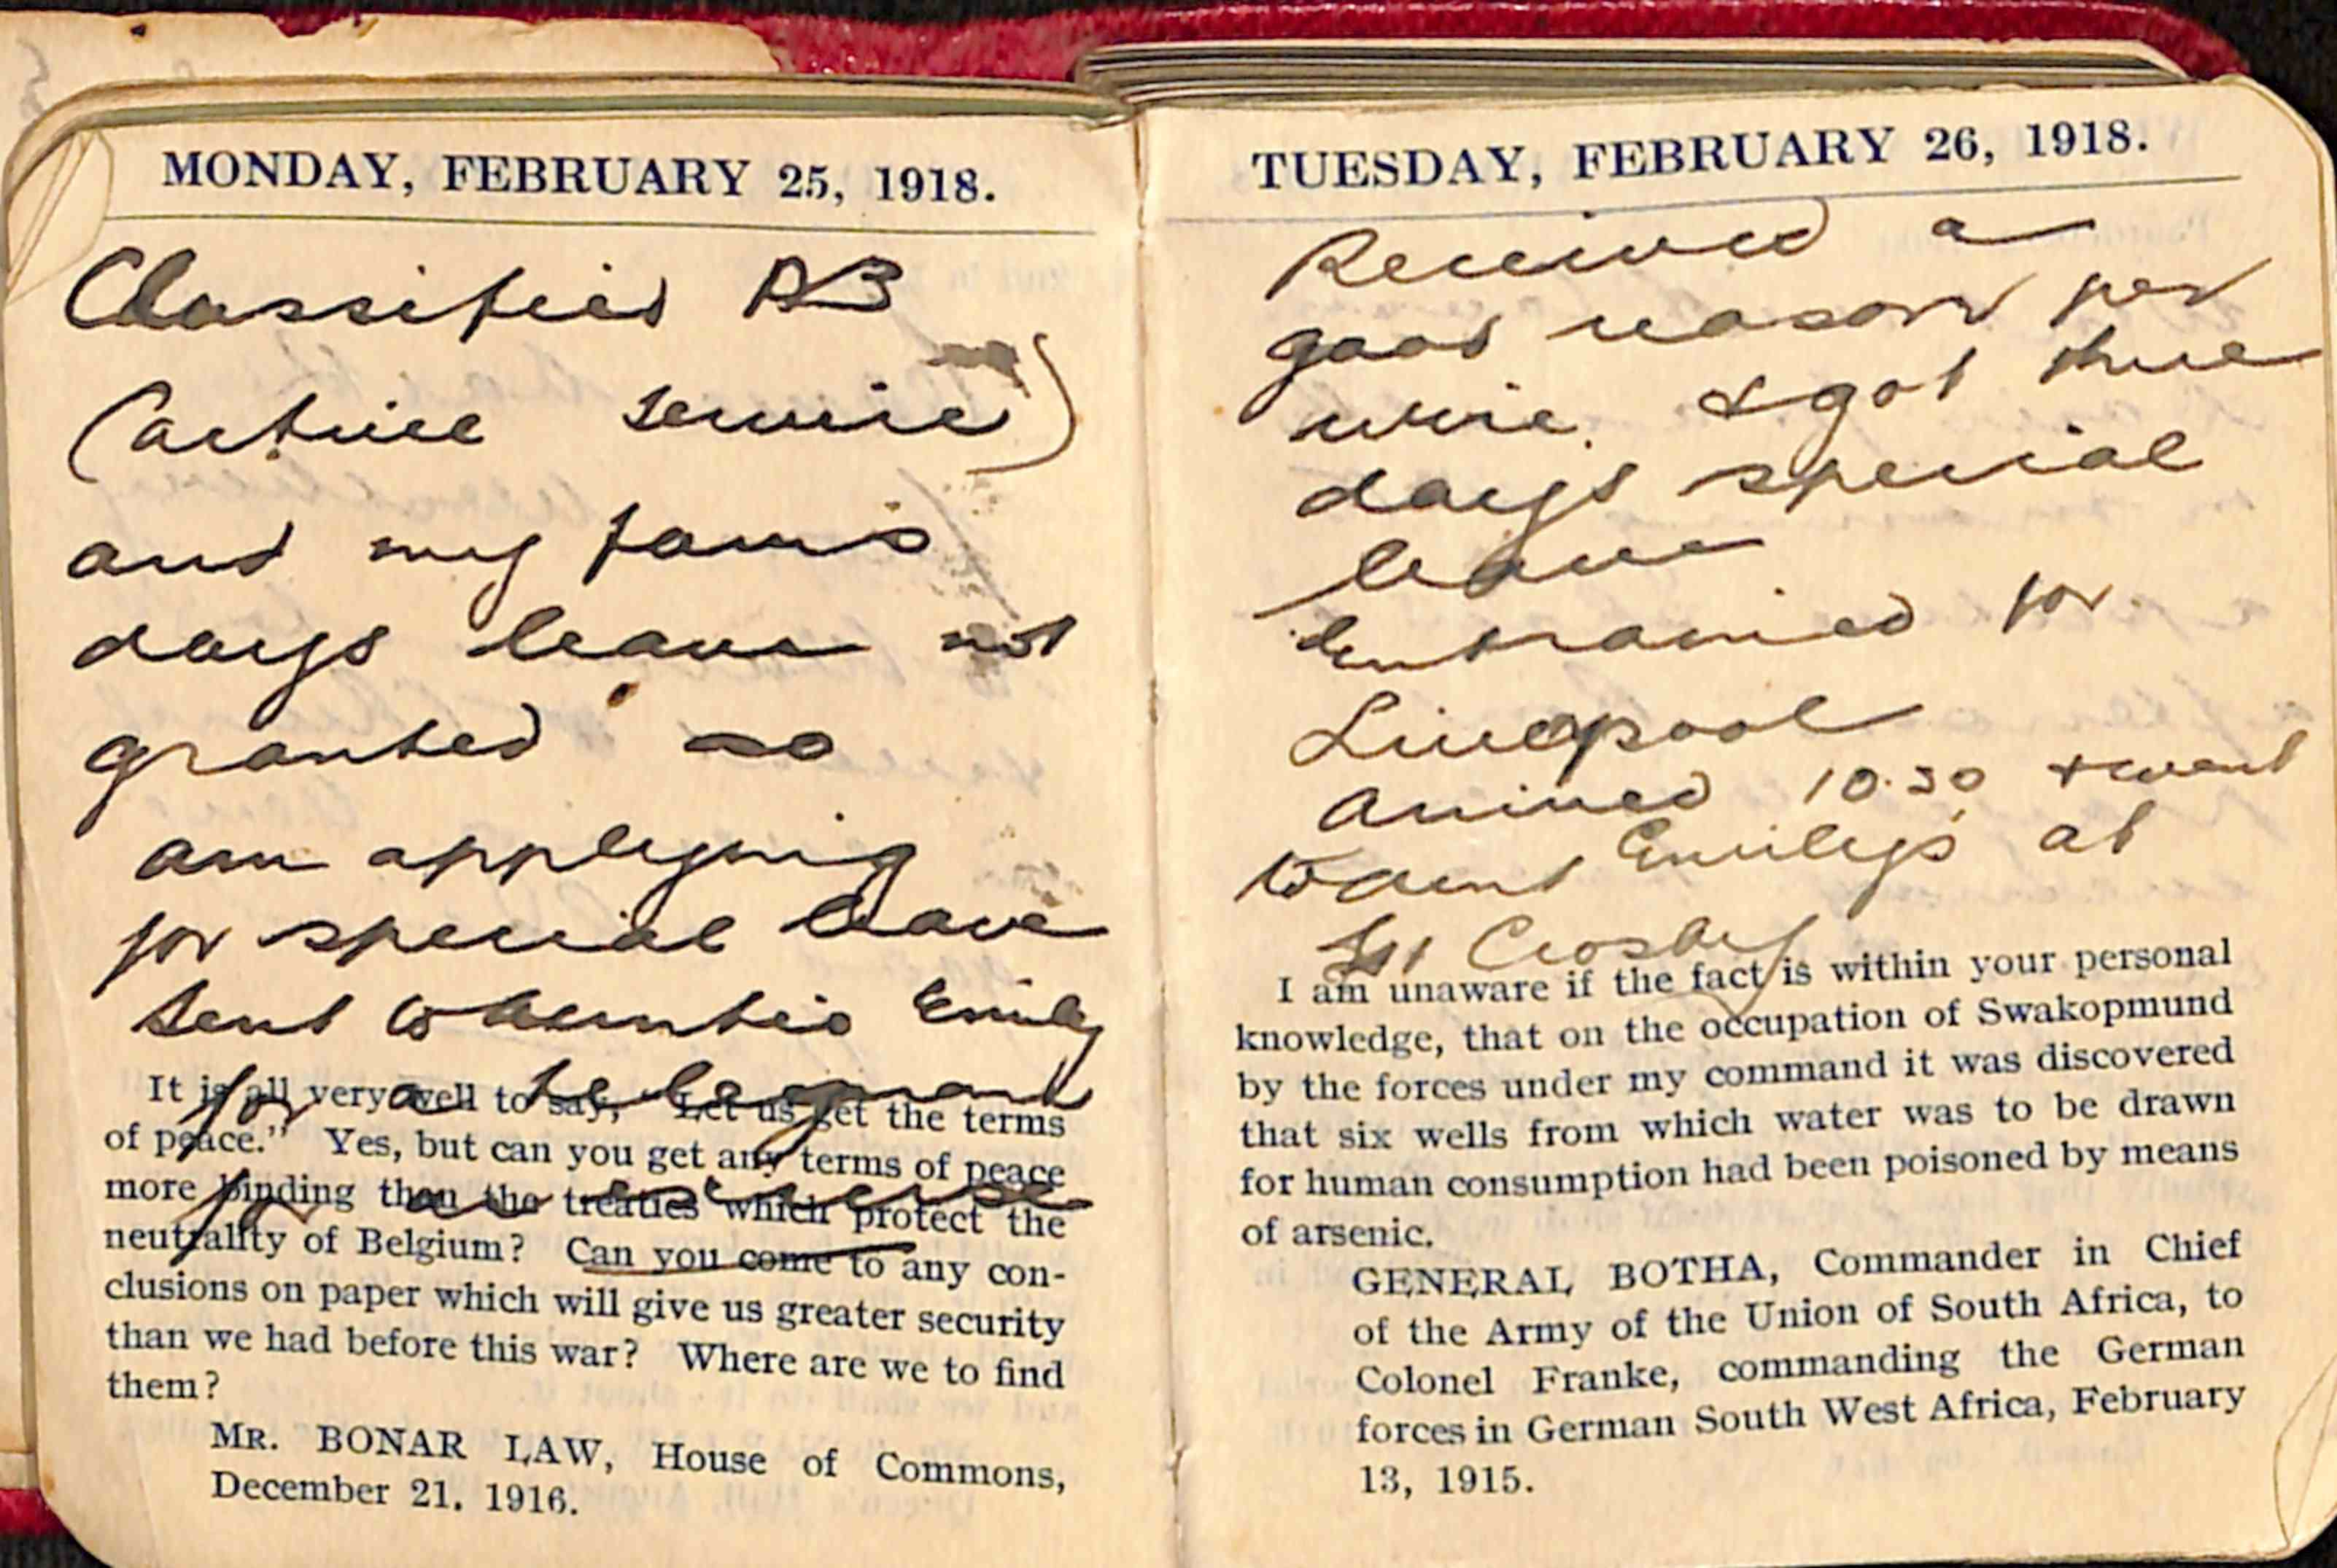 MONDAY, FEBRUARY 25, 1918.
Classified
(active service)
and my
days leave not
granted so
am applying
for special leave
Sent to Auntie Emily
for a telegram
for an excuse
It is all very well to say, "Let us get the terms
of peace." Yes, but can you get any terms of peace
more binding than the treaties which protect the
neutrality of Belgium? Can you come to any con-
clusions on paper which will give us greater security
than we had before this war? Where are we to find
them?
MR. BONAR LAW, House of Commons,
December 21, 1916.
TUESDAY, FEBRUARY 26, 1918.
Received a
good reason per
wire. & got three
days special
leave
Entrained for
Liverpool
Arrived 10.30 & went
to Aunt Emily's at
Gt Crosby
I am unaware if the fact is within your personal
knowledge, that on the occupation of Swakopmund
by the forces under my command it was discovered
that six wells from which water was to be drawn
for human consumption had been poisoned by means
of arsenic.
GENERAL BOTHA, Commander in Chief
of the Army of the Union of South Africa, to
Colonel Franke, commanding the German
forces in German South West Africa, February
13, 1915.